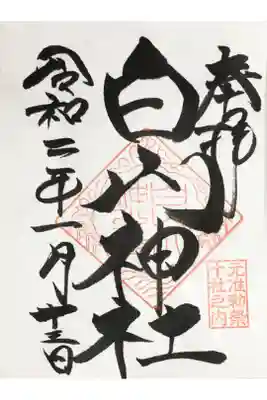 奉拝
元准勅祭
十社之内
白山神社
令和二年一月廿三日